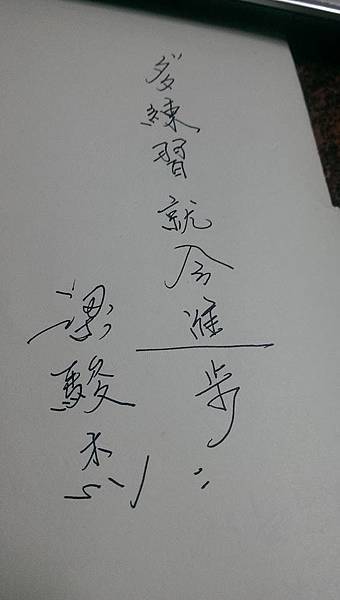 多練習就会進步
梁駿杰